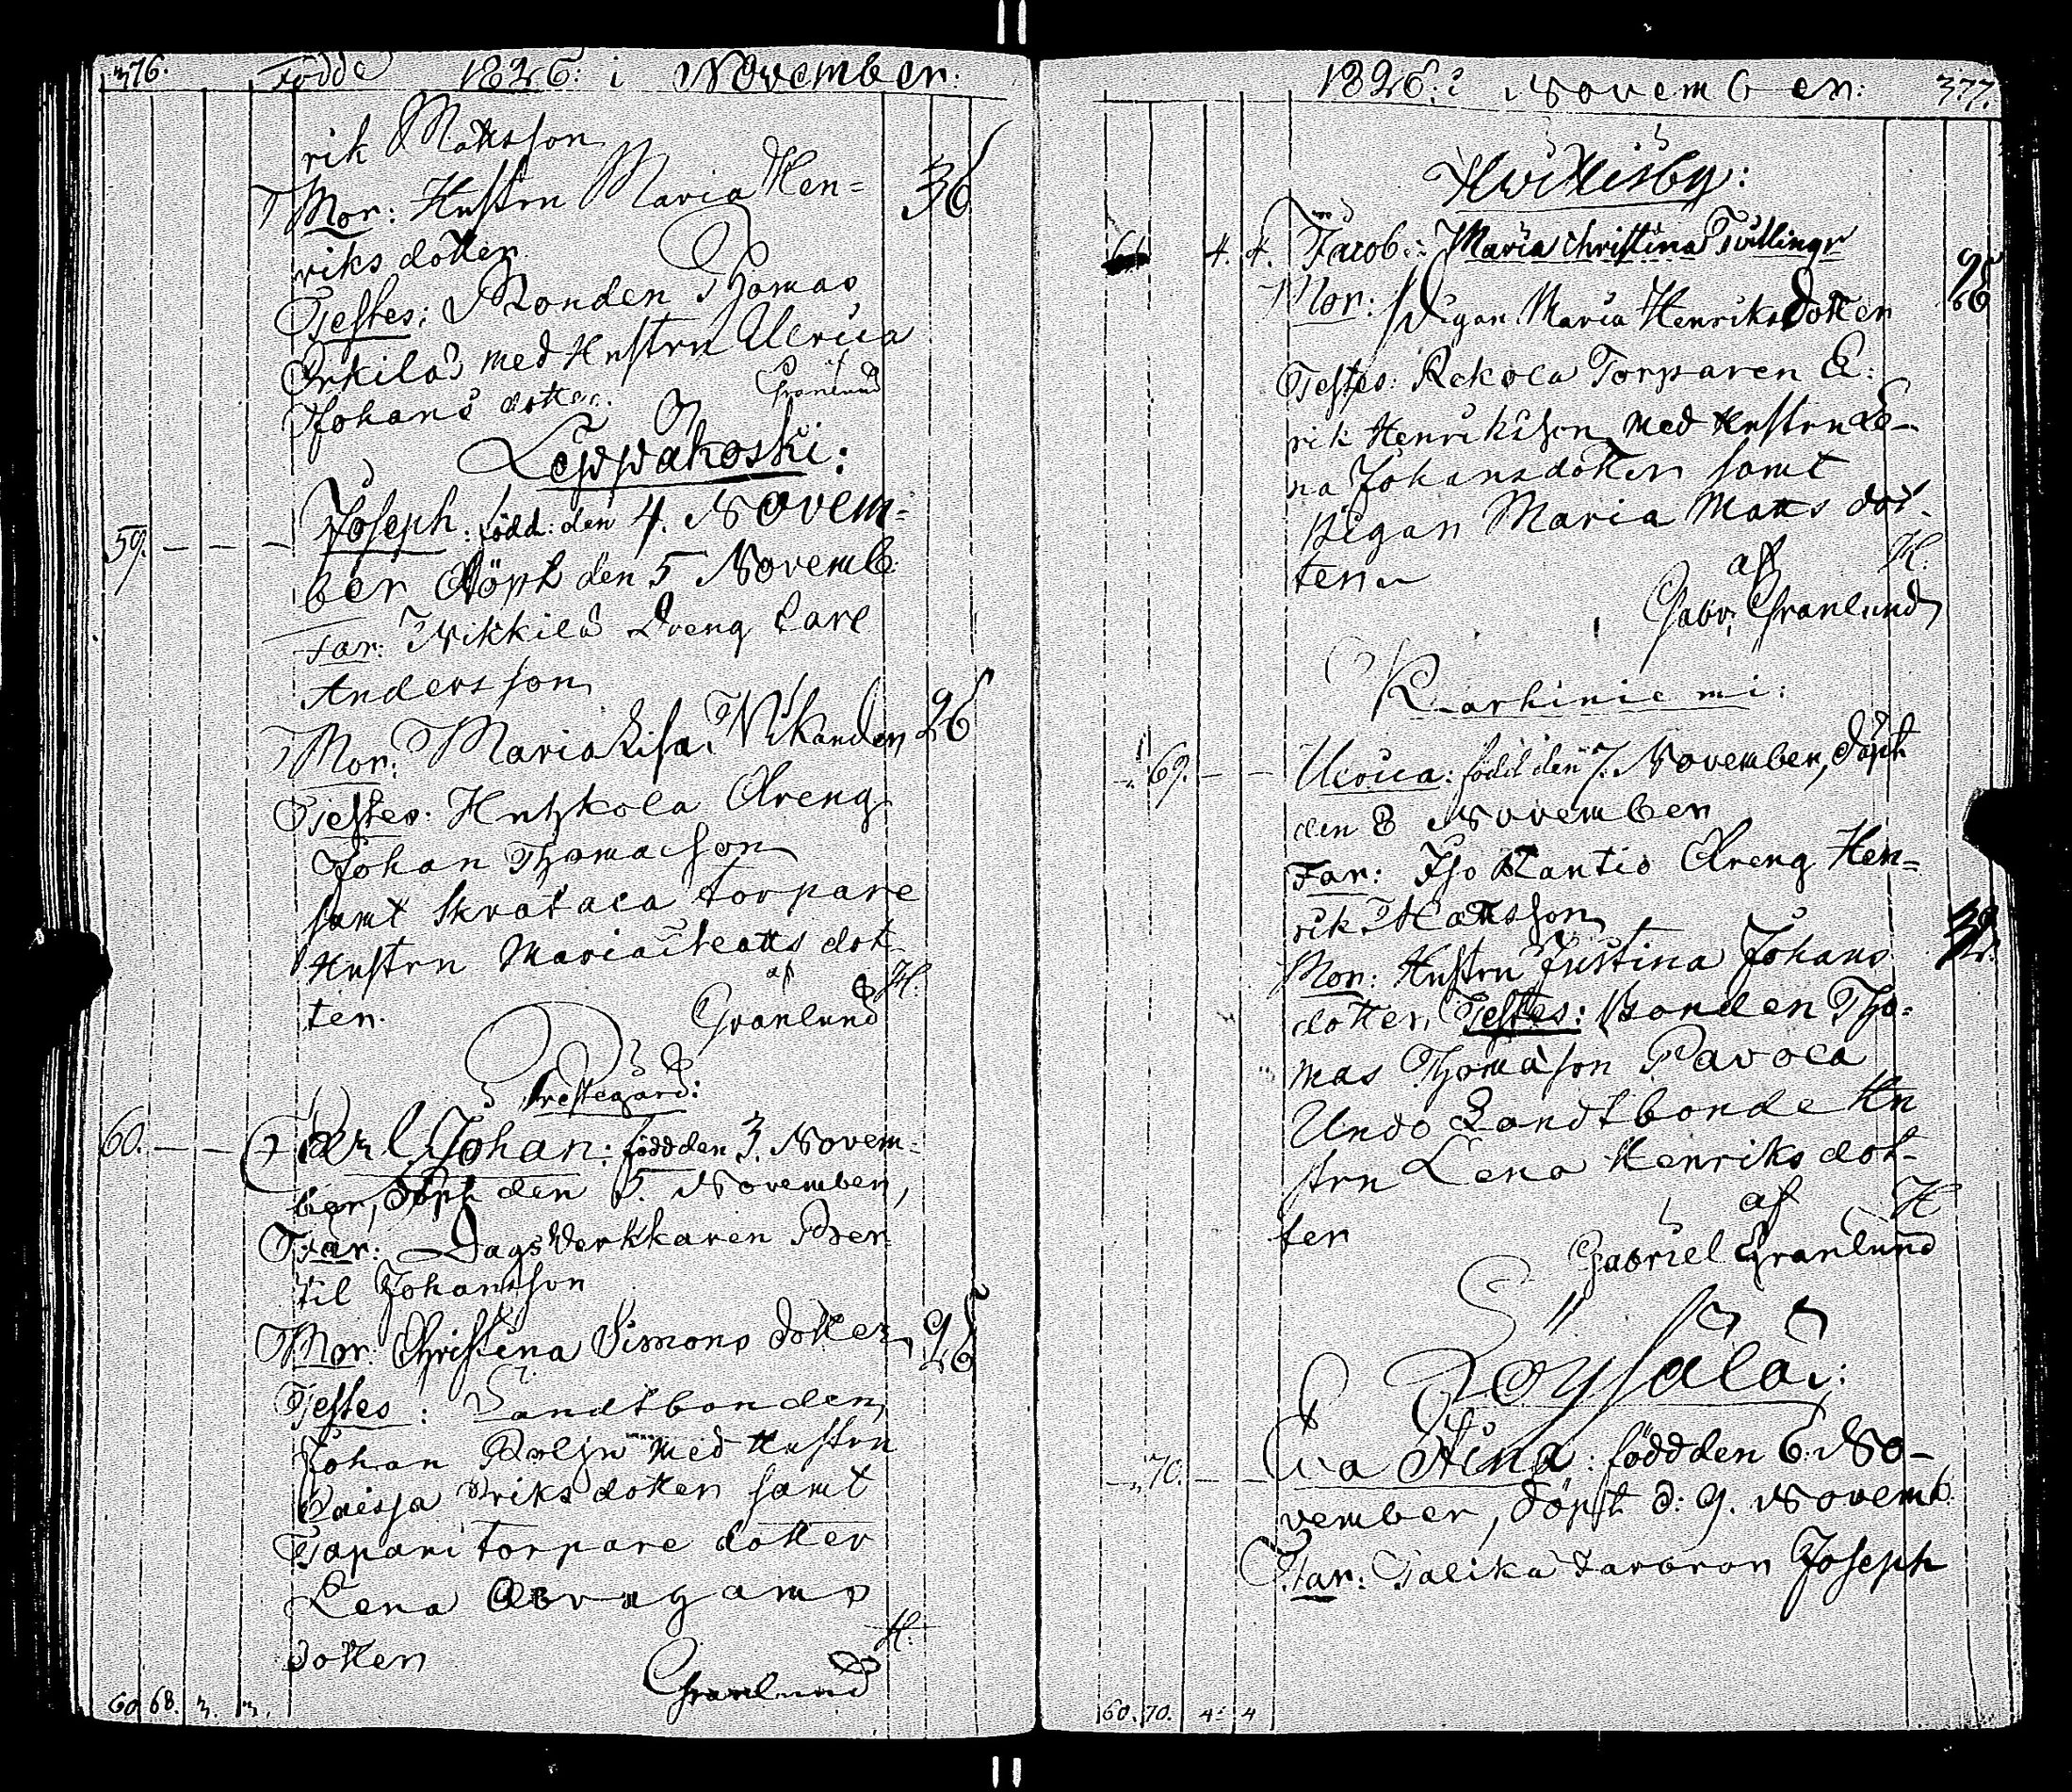 376. Födde 1826: i November:
rik Mattsson
Mor: Hustru Maria Hen= 36
riks dotter
Testes: Bonden Thomas
Orkila med Hustru Ulrica
Johans dotter. Granlund
Lewwäkoski:
59. — — — Joseph: född: den 4. Novem=
ber Döpt den 5 Novemb
Far: Nikkilä Dreng Carl
Andersson
Mor: Maria Lisa Vikander 26
Testes: Dreng
Johan Thomasson
samt Skratala torpare
Hustru Maria Matts dot
ter. af H:
Granlund
Prestegård:
60. — — Carl Johan: född den 3. Novem=
ber, Döpt den 5. November,
Far: Dagsverkkaren Ber
til Johansson
Mor: Christina Simons dotter 26
Testes: Landtbonden
Johan med Hustru
Caissa Eriks dotter samt
Tapani torpare dotter
Lena Abragams
dotter H:
Granlund
60 68. 3. 3.
1826: i November: 377.
Huittisby:
61 4. 4. Jacob: Maria Christina Tvillingr
Mor: Pigan Maria Henriks Dotter 26
Testes: Rekola Torparen E:
rik Henriksson med Hustru Le-
na Johansdotter samt
Pigan Maria Matts dot-
ter af H:
Gabr: Granlund
Karhiniemi:
69. — — Ulrica: född den 7. November, döpt
den 8 November
Far: Iso Rantio Dreng Hen=
rik Mattsson
Mor: Hustru Justina Johans
dotter, Testes: Bonden Tho=
mas Thomasson Pavola
Undo Landtbonde Hu
stru Lena Henriks dot-
ter af H
Gabriel Granlund
Löysälä:
70. — — Eva Stina: född den 6. No-
vember, döpt d: 9. Novemb
Far: Talika Joseph
60. 70. 4: 4